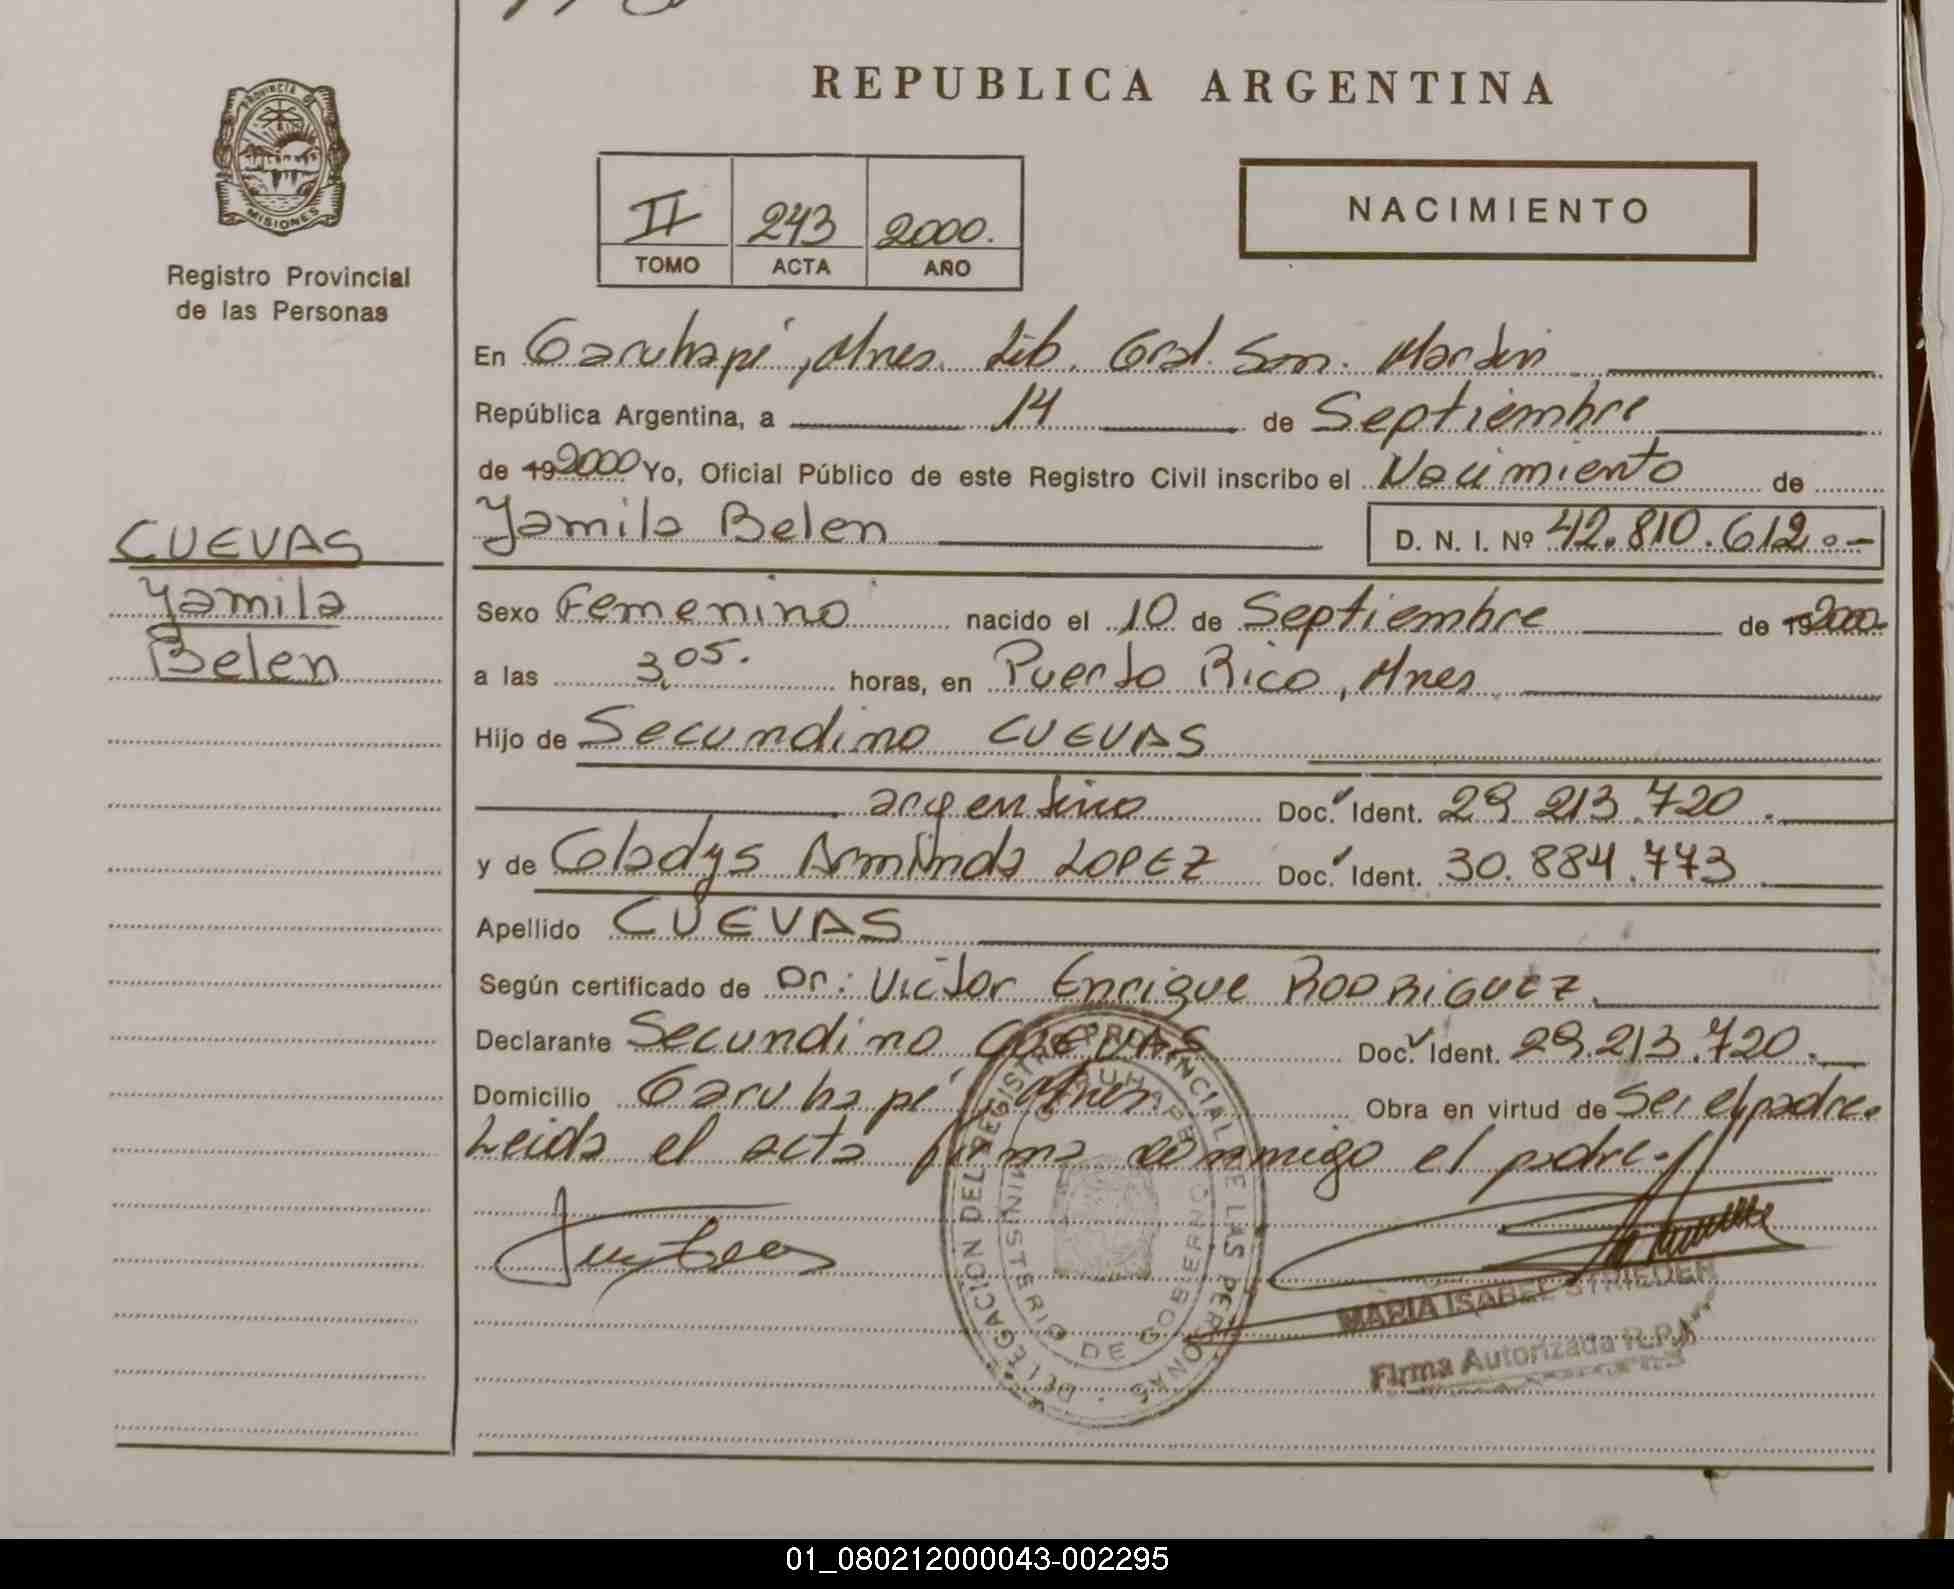 REPUBLICA ARGENTINA
PROVINCIA DE MISIONES
Registro Provincial
de las Personas
II 243 2000.
TOMO ACTA AÑO
NACIMIENTO
En Garuhapé, Mnes. Lib. Gral. San. Martin
República Argentina, a 14 de Septiembre
de 19 2000 Yo, Oficial Público de este Registro Civil inscribo el Nacimiento de
Yamila Belen D. N. I. Nº 42.810.612.-
CUEVAS
Yamila
Belen
Sexo Femenino nacido el 10 de Septiembre de 19 2000
a las 3,05. horas, en Puerto Rico, Mnes
Hijo de Secundino CUEVAS
argentino Doc. Ident. 29.213.720.
y de Gladys Arminda LOPEZ Doc. Ident. 30.884.773
Apellido CUEVAS
Según certificado de Dr: Victor Enrique RODRIGUEZ.
Declarante Secundino CUEVAS Doc. Ident. 29.213.720.
Domicilio Garuhapé Mnes. Obra en virtud de Ser el padre.
Leida el acta firma conmigo el padre.
DELEGACION DEL REGISTRO PROVINCIAL DE LAS PERSONAS
MINISTERIO DE GOBIERNO
MARIA ISABEL STRIEDER
Firma Autorizada R.P.P.
01_080212000043-002295